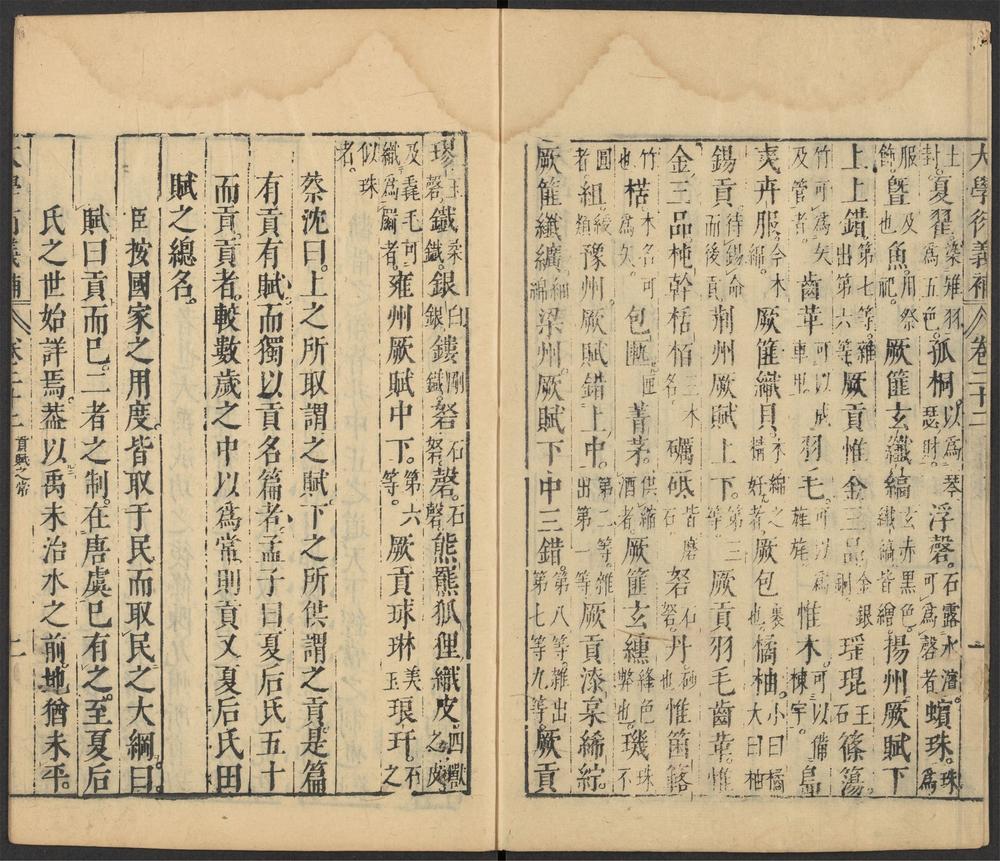 大學衍義補 卷二十二 一
土封。夏翟染雉羽爲五色。孤桐以爲琴瑟財。浮磬石露水濱可爲磬者。蠙珠珠爲
服飾。曁及也魚用祭祀。厥篚玄纖縞玄赤黑色纖縞皆繒。揚州厥賦下
上上錯第七等雜出第六等。厥貢惟金三品金銀銅瑤琨玉石篠簜
竹可爲矢及管者。齒革可以成車甲羽毛可以爲旌旄惟木可以備棟宇。島
夷卉服今木綿。厥篚織貝木綿之精好者。厥包裹也橘柚小曰橘大曰柚
錫貢待錫命而後貢。荆州厥賦上下第三等。厥貢羽毛齒革惟
金三品杶幹栝栢三木名礪砥皆磨石砮石砮丹砂也惟箘簵
竹也楛木名可爲矢。包匭匣也菁茅供縮酒者厥篚玄纁絳色幣也。璣珠不
圓者組綬類。豫州厥賦錯上中第二等雜出第一等。厥貢漆枲絺紵
厥篚纖纊細綿。梁州厥賦下中三錯第八等雜出第七等九等。厥貢
璆玉磬鐵柔鐵銀白銀鏤剛鐵砮石砮磬石磬熊羆狐狸織皮四獸之皮
及毳毛織爲罽者。雍州厥賦中下第六等。厥貢球琳美玉琅玕石之
似珠者。
蔡沈曰。上之所取謂之賦。下之所供謂之貢。是篇
有貢有賦而獨以貢名篇者。孟子曰夏后氏五十
而貢。貢者。較數歲之中以爲常。則貢又夏后氏田
賦之總名。
臣按國家之用度。皆取于民而取民之大綱。曰
賦曰貢而已。二者之制。在唐虞已有之。至夏后
氏之世始詳焉。葢以禹未治水之前。地猶未平。
卷二十二 貢賦之常